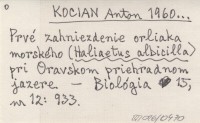 KOCIAN Anton 1960...
Prvé zahniezdenie orliaka
morského (Haliaetus albicilla)
pri Oravskom priehradnom
jazere. – Biológia 15,
nr 12: 933.